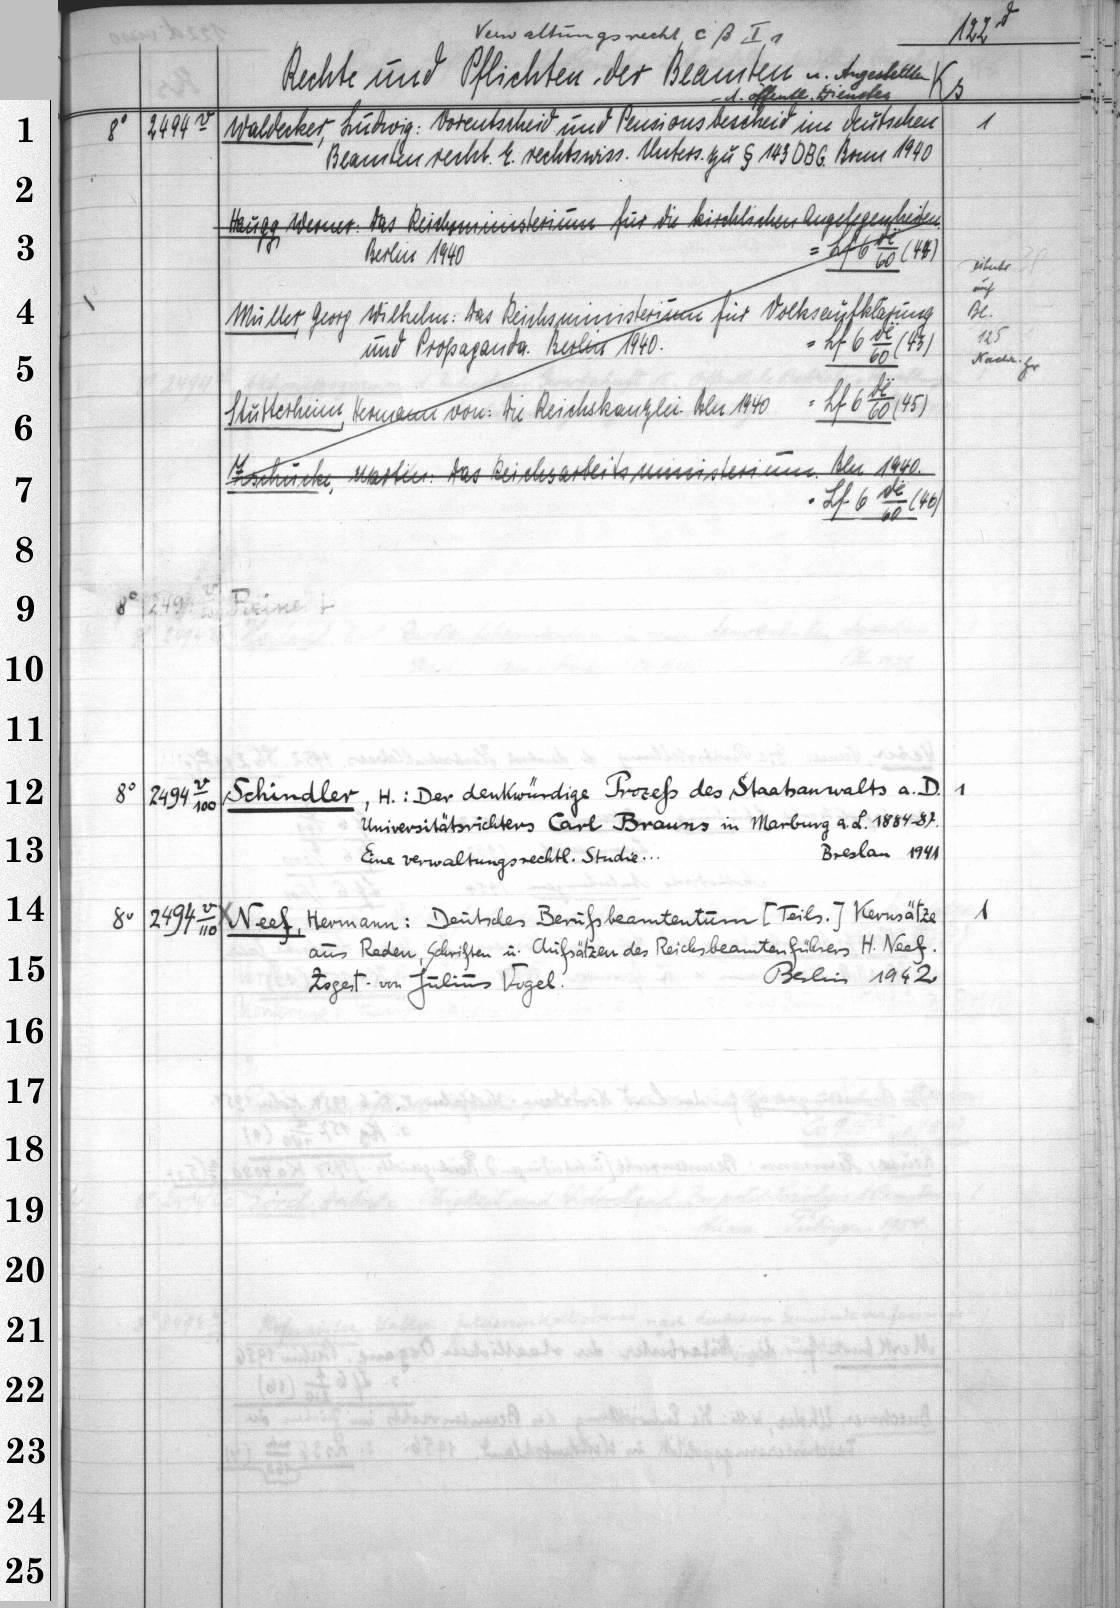 Verwaltungsrecht C β I, 1
122 d
Rechte und Pflichten der Beamten u. Angestellten
d. öffentl. Dienstes
K β
1 8° 2494 v Waldecker, Ludwig: Vorentscheid und Pensionsbescheid im deutschen 1
Beamtenrecht. E. rechtswiss. Unters. zu § 143 DBG. Bonn 1940
2
Haugg, Werner: Das Reichsministerium für die kirchlichen Angelegenheiten.
3 Berlin 1940 = Lf 6 di/60 (44)
auf
4 Müller, Georg Wilhelm: Das Reichsministerium für Volksaufklärung Bl.
und Propaganda. Berlin 1940. = Lf 6 di/60 (43) 125
5
6 Stutterheim, Hermann von: Die Reichskanzlei. Bln 1940 = Lf 6 di/60 (45)
7 Zschucke, Martin: Das Reichsarbeitsministerium. Bln 1940.
= Lf 6 di/60 (46)
8
9 8° 2494 v
10
11
12 8° 2494 v/100 Schindler, H.: Der denkwürdige Prozeß des Staatsanwalts a. D. 1
Universitätsrichters Carl Brauns in Marburg a. L. 1884-87.
13 Eine verwaltungsrechtl. Studie... Breslau 1941
14 8° 2494 v/110 X Neef, Hermann: Deutsches Berufsbeamtentum [Teils.] Kernsätze 1
aus Reden, Schriften u. Aufsätzen des Reichsbeamtenführers H. Neef.
15 Zsgest. von Julius Vogel. Berlin 1942
16
17
18
19
20
21
22
23
24
25